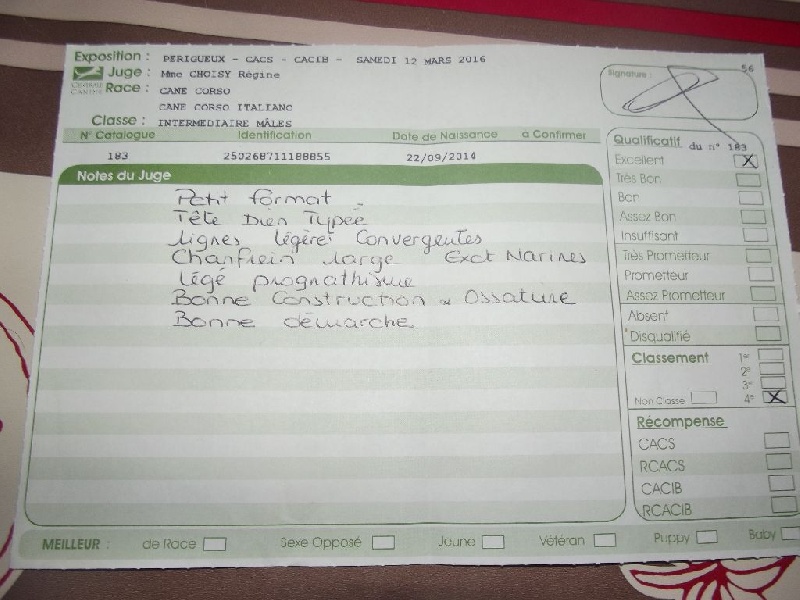 Exposition : PERIGUEUX - CACS - CACIB - SAMEDI 12 MARS 2016
Juge : Mme CHOISY Régine
Race : CANE CORSO
CANE CORSO ITALIANO
Classe : INTERMEDIAIRE MÂLES
Signature :
56
N° Catalogue Identification Date de Naissance a Confirmer
183 250268711188855 22/09/2014
Notes du Juge
Petit format -
Tête bien Typée
Lignes légère Convergentes
Chanfrein large Exct Narines
légé prognathisme
Bonne Construction & Ossature
Bonne démarche
Qualificatif du n° 183
Excellent X
Très Bon
Bon
Assez Bon
Insuffisant
Très Prometteur
Prometteur
Assez Prometteur
Absent
Disqualifié
Classement 1er
2e
3e
Non Classé 4e X
Récompense
CACS
RCACS
CACIB
RCACIB
MEILLEUR : de Race Sexe Opposé Jeune Vétéran Puppy Baby